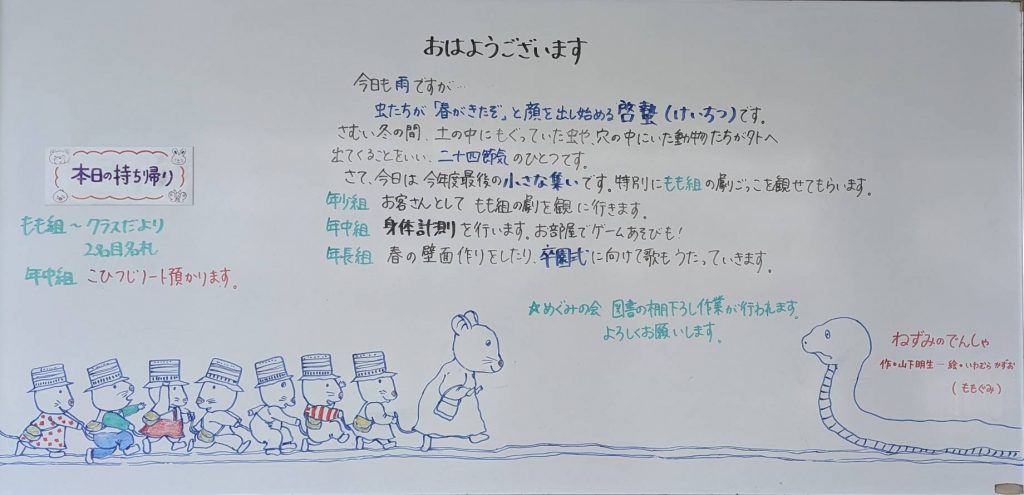 おはようございます
今日も雨ですが…
虫たちが「春がきたぞ」と顔を出し始める啓蟄(けいちつ)です。
さむい冬の間、土の中にもぐっていた虫や、穴の中にいた動物たちが外へ
出てくることをいい、二十四節気のひとつです。
さて、今日は今年度最後の小さな集いです。特別にもも組の劇ごっこを観せてもらいます。
年少組 お客さんとして もも組の劇を観に行きます。
年中組 身体計測を行います。お部屋でゲームあそびも!
年長組 春の壁面作りをしたり、卒園式に向けて歌もうたっていきます。
☆めぐみの会 図書の棚下ろし作業が行われます。
よろしくお願いします。
本日の持ち帰り
もも組~クラスだより
2名目名札
年中組 こひつじノート預かります。
ねずみのでんしゃ
作・山下明生 ― 絵・いわむら かずお
(ももぐみ)